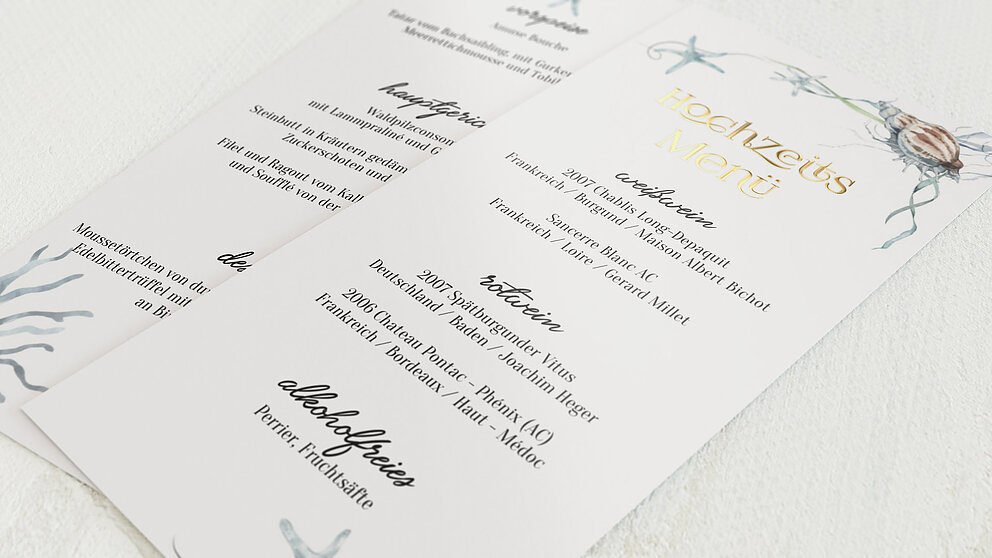 vorspeise
Amuse Bouche
Tatar vom Bachsaibling, mit Gurken
Meerrettichmousse und
Waldpilzconsom
mit Lammpraliné und G
Steinbutt in Kräutern gedäm
Zuckerschoten und
Filet und Ragout vom Kal
und Soufflé von der
des
Moussetörtchen von du
Edelbittertrüffel mit
an Bi
Hochzeits
Menü
weißwein
2007 Chablis Long-Depaquit
Frankreich / Burgund / Maison Albert Bichot
Sancerre Blanc AC
Frankreich / Loire / Gerard Millet
rotwein
2007 Spätburgunder Vitus
Deutschland / Baden / Joachim Heger
2006 Chateau Pontac – Phénix (AC)
Frankreich / Bordeaux / Haut – Médoc
alkoholfreies
Perrier, Fruchtsäfte